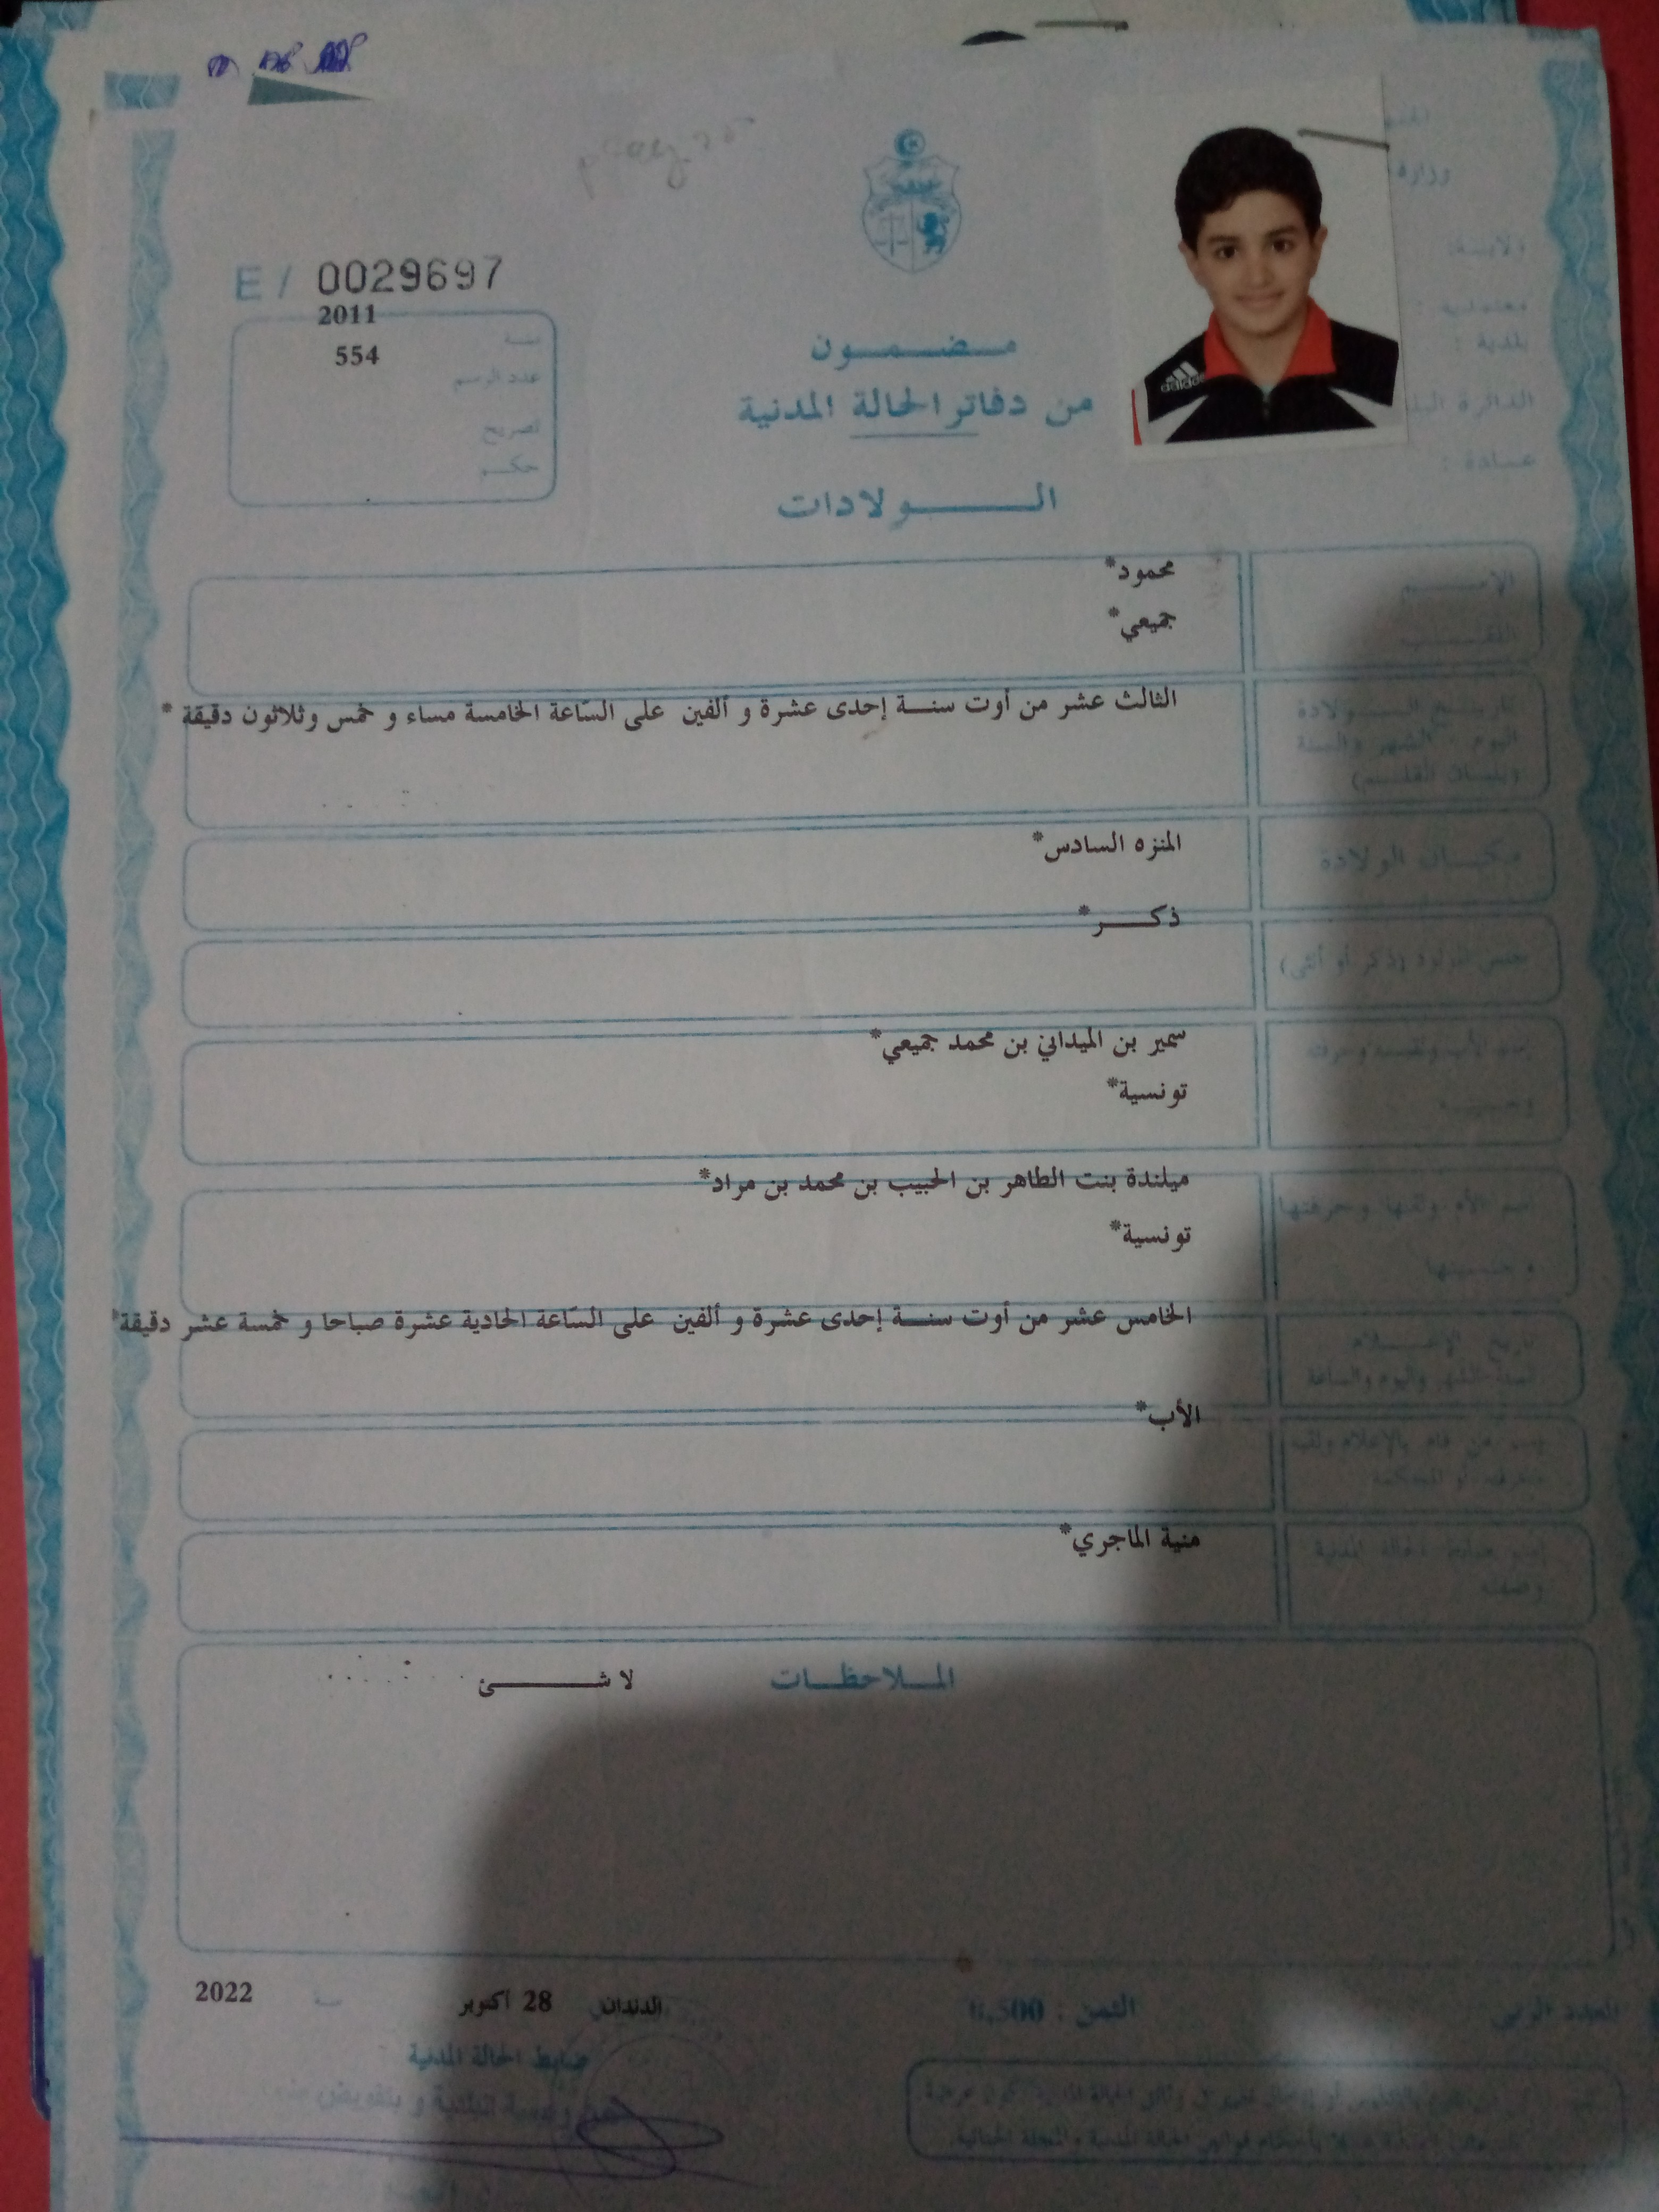 وزارة
ولاية:
معتمدية :
بلدية :
عمادة :
E / 0029697
2011
سنة
554
عدد الرسم
تصريح
حكم
مضمون
من دفاتر الحالة المدنية
الولادات
الإسم
محمود*
اللقب
جميعي*
تاريخ الولادة
اليوم - الشهر والسنة
وبلسان القلم)
الثالث عشر من أوت سنة إحدى عشرة و ألفين على السّاعة الخامسة مساء و خمس وثلاثون دقيقة *
مكان الولادة
المنزه السادس*
جنس المولود (ذكر أو أنثى)
ذكر*
سمير بن الميداني بن محمد جميعي*
تونسية*
إسم الأم ولقبها وحرفتها
وجنسيتها
ميلندة بنت الطاهر بن الحبيب بن محمد بن مراد*
تونسية*
تاريخ الإعلام
السنة الشهر واليوم والساعة
الخامس عشر من أوت سنة إحدى عشرة و ألفين على السّاعة الحادية عشرة صباحا و خمسة عشر دقيقة*
إسم من قام بالإعلام ولقبه
الأب*
إسم ضابط الحالة المدنية
وصفته
منية الماجري*
الملاحظات
لا شئ
الدندان 28 أكتوبر 2022
ضابط الحالة المدنية
الثمن : 0,500
العدد الرتبي
adidas